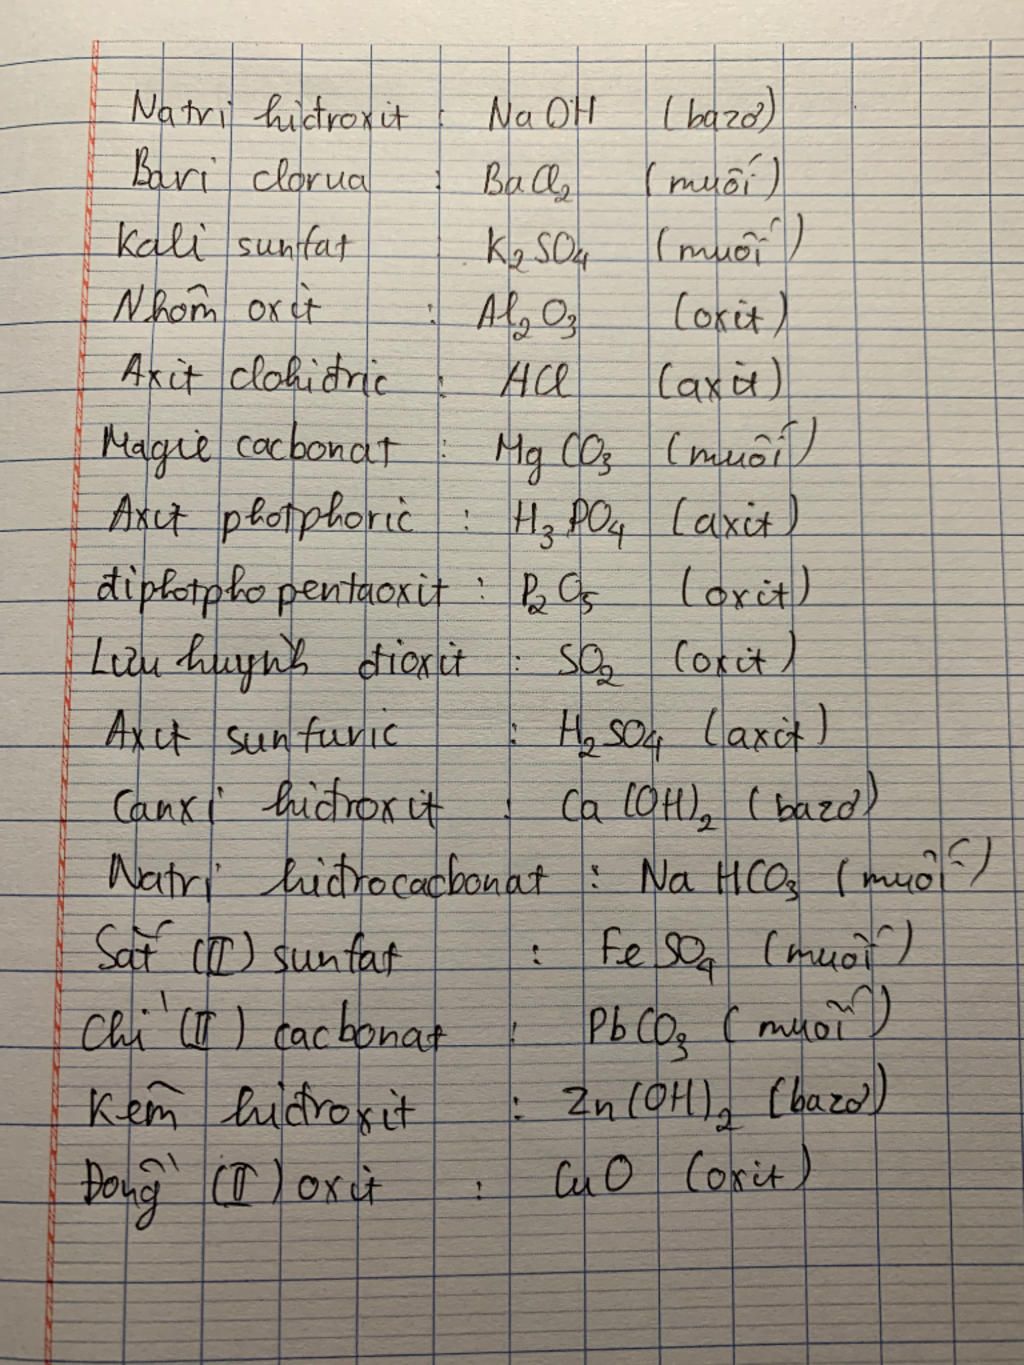 Natri hiđroxit : NaOH (bazơ)
Bari clorua : BaCl₂ (muối)
Kali sunfat : K₂SO₄ (muối)
Nhôm oxit : Al₂O₃ (oxit)
Axit clohiđric : HCl (axit)
Magie cacbonat : MgCO₃ (muối)
Axit photphoric : H₃PO₄ (axit)
điphotpho pentaoxit : P₂O₅ (oxit)
Lưu huỳnh đioxit : SO₂ (oxit)
Axit sunfuric : H₂SO₄ (axit)
Canxi hiđroxit : Ca(OH)₂ (bazơ)
Natri hiđrocacbonat : NaHCO₃ (muối)
Sắt (II) sunfat : FeSO₄ (muối)
Chì (II) cacbonat : PbCO₃ (muối)
Kẽm hiđroxit : Zn(OH)₂ (bazơ)
Đồng (II) oxit : CuO (oxit)